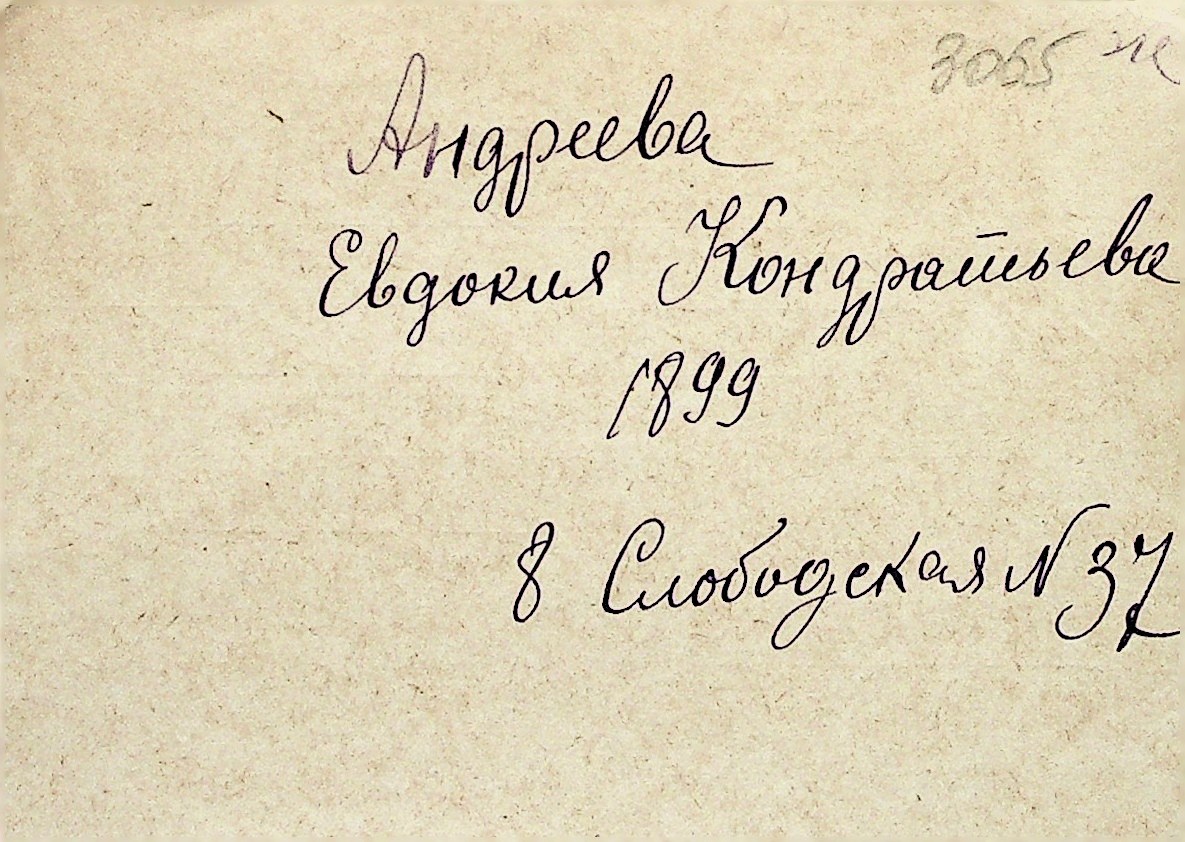 3065 ж
Андреева
Евдокия Кондратьева
1899
8 Слободская N 37